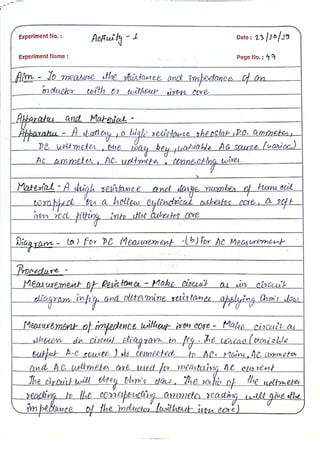 Experiment No. : Activity - 1 Date : 23/10/19
Experiment Name : Page No. : 43
Aim - To measure the resistance and impedance of an
inductor with or without iron core
Apparatus and Material -
Apparatus - A battery, a high resistance rheostat, D.C. ammeter,
DC voltmeter, one way key, variable AG source (variac)
AC ammeter, AC voltmeter, connecting wires.
Material - A high resistance and large number of turns coil
wrapped on a hollow cylindrical asbestos core, a soft
iron rod fitting into the asbestos core
Diagram - (a) For DC Measurement - (b) For AC Measurement
Procedure -
Measurement of Resistance - Make circuit as in circuit
diagram in fig and determine resistance applying Ohm's law
Measurement of impedence without iron core - Make circuit as
shown in circuit diagram in fig. The variac (variable
output A-C source) is connected to AC- Mains, AC ammeter
and AC voltmeter are used for measuring AC current
The circuit will obey Ohm's law. The ratio of the voltmeter
reading to the corresponding ammeter reading will give the
impedance of the inductor (without iron core)